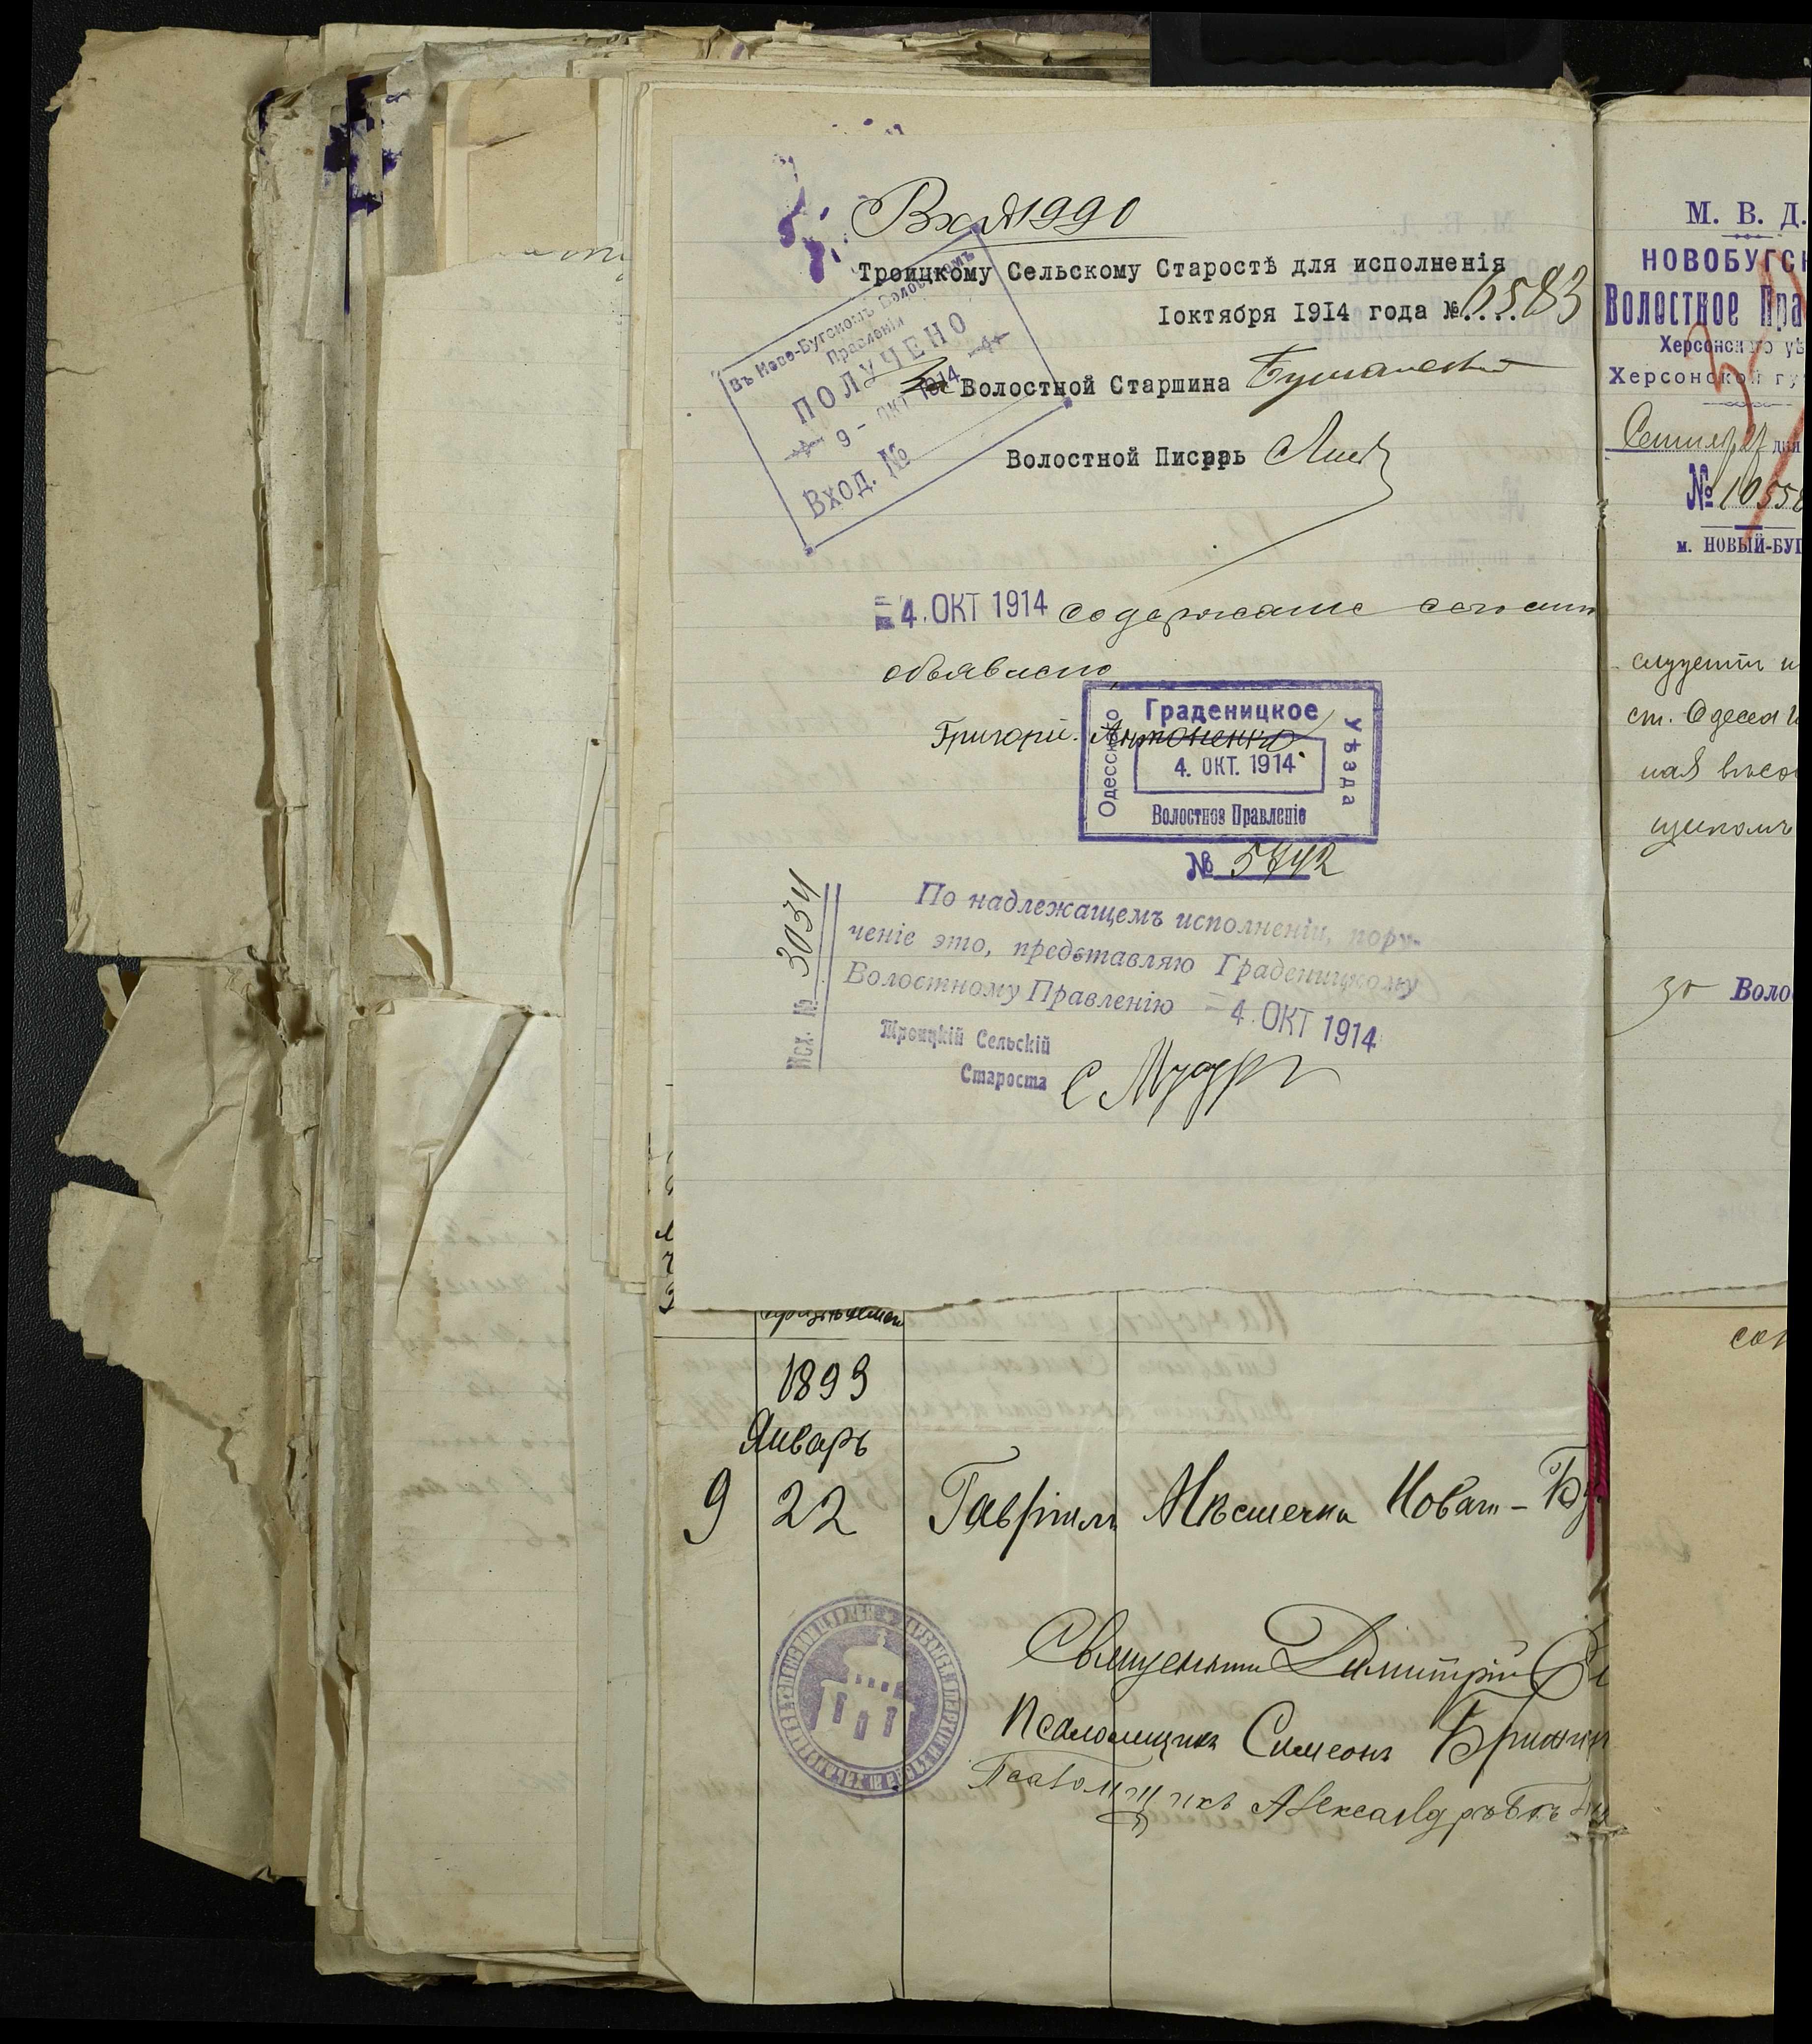 Вх №1990
Троицкому Сельскому Старостѣ для исполненія
Іоктября 1914 года №....6583
Въ Ново-Бугскомъ Волостномъ
Правленіи
ПОЛУЧЕНО
9 - ОКТ 1914
Вход. №
За Волостной Старшина
Волостной Писарь
4. ОКТ 1914 содержаніе сего мнѣ
объявлено
Григорій Антоненко
Граденицкое
Одесскаго
Уѣзда
4. ОКТ. 1914
Волостное Правленіе
№ 5742
Исх. № 3034
По надлежащемъ исполненіи, пору-
ченіе это, представляю Граденицкому
Волостному Правленію 4. ОКТ 1914
Троицкій Сельскій
Староста С Мудр
1893
Январь
9 22 Гавріилъ Мѣстечка Новаго-Бу
Священникъ Димитрій
Псаломщикъ Симеонъ
Псаломщикъ Александръ
М. В. Д.
НОВОБУГСК
Волостное Пра
Херсонскаго уѣ
Херсонской гу
Сентября дня
№ 10558
м. НОВЫЙ-БУГ
служитъ
ст. Одесса
ная
щикомъ
за Воло